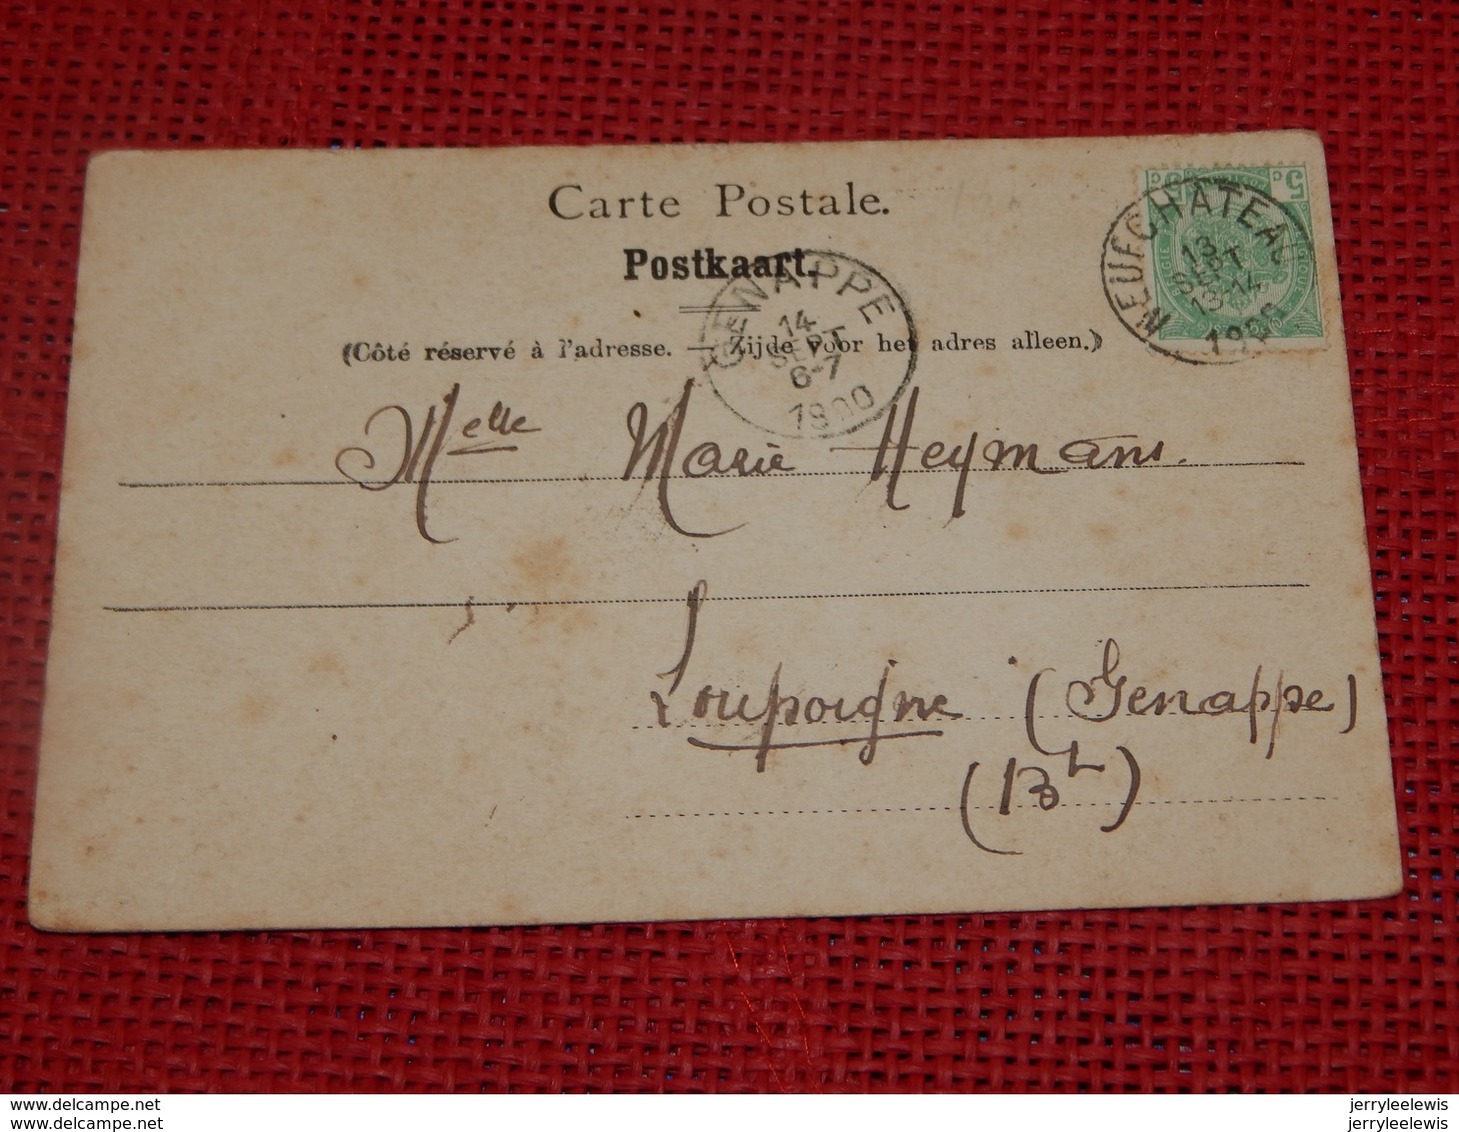 Carte Postale.
Postkaart.
(Côté réservé à l'adresse. — Zijde voor het adres alleen.)
5 C C 5
NEUFCHATEAU
13
SEPT
13-14
1900
GENAPPE
14
SEPT
6-7
1900
Melle Marie Heymans.
Loupoigne (Genappe)
(Bt)
www.delcampe.net
www.delcampe.net
jerryleelewis
jerryleelewis